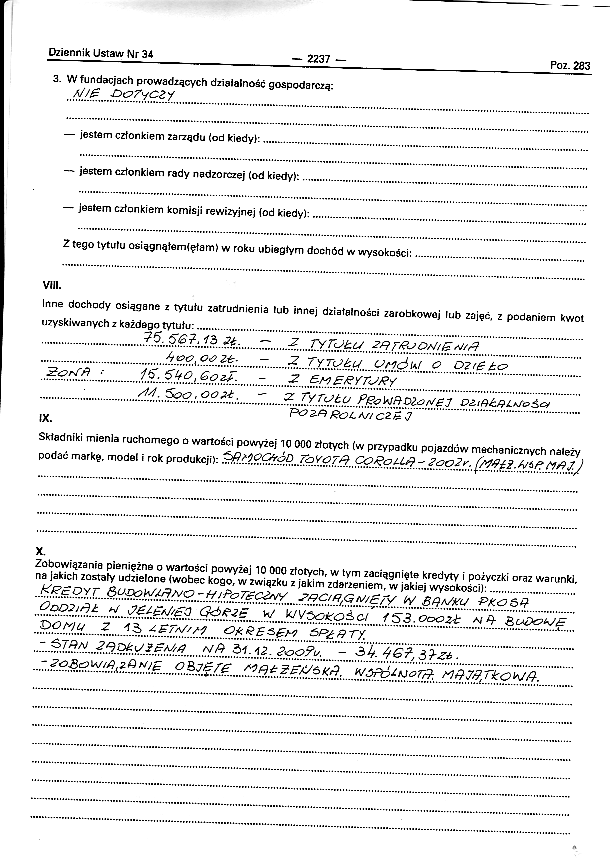 Dziennik Ustaw Nr 34 — 2237 — Poz. 283
3. W fundacjach prowadzących działalność gospodarczą:
NIE DOTYCZY
— jestem członkiem zarządu (od kiedy):
— jestem członkiem rady nadzorczej (od kiedy):
— jestem członkiem komisji rewizyjnej (od kiedy):
Z tego tytułu osiągnąłem(ęłam) w roku ubiegłym dochód w wysokości:
VIII.
Inne dochody osiągane z tytułu zatrudnienia lub innej działalności zarobkowej lub zajęć, z podaniem kwot
uzyskiwanych z każdego tytułu:
75.567.13 zł. — Z TYTUŁU ZATRUDNIENIA
400,00 zł. — Z TYTUŁU UMÓW O DZIEŁO
ŻONA : 15.540,60 zł. - Z EMERYTURY
11.500,00 zł. - Z TYTUŁU PROWADZONEJ DZIAŁALNOŚCI
POZAROLNICZEJ
IX.
Składniki mienia ruchomego o wartości powyżej 10 000 złotych (w przypadku pojazdów mechanicznych należy
podać markę, model i rok produkcji): SAMOCHÓD TOYOTA COROLLA - 2002r. (MAŁŻ.WSP.MAJ.)
X.
Zobowiązanie pieniężne o wartości powyżej 10 000 złotych, w tym zaciągnięte kredyty i pożyczki oraz warunki,
na jakich zostały udzielone (wobec kogo, w związku z jakim zdarzeniem, w jakiej wysokości):
KREDYT BUDOWLANO-HIPOTECZNY ZACIĄGNIĘTY W BANKU PKO SA
ODDZIAŁ W JELENIEJ GÓRZE W WYSOKOŚCI 153.000zł NA BUDOWĘ
DOMU Z 13 LETNIM OKRESEM SPŁATY.
- STAN ZADŁUŻENIA NA 31.12.2009r. - 34.467,37zł.
- ZOBOWIĄZANIE OBJĘTE MAŁŻEŃSKĄ WSPÓLNOTĄ MAJĄTKOWĄ.